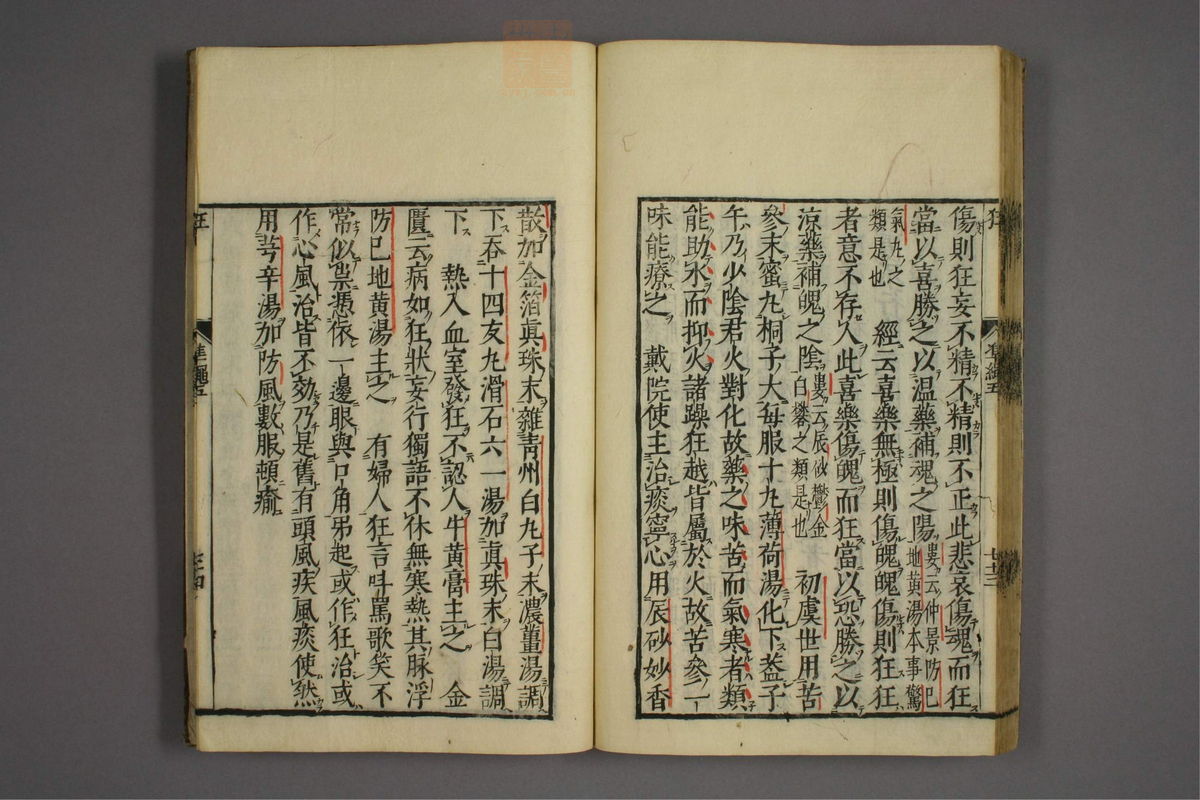 傷則狂妄不精不精則不正此悲哀傷魂而狂
當以喜勝之以温藥補魂之陽婁云仲景防已地黄湯本事驚
氣丸之類是也　經云喜樂無極則傷魄魄傷則狂狂
者意不存人此喜樂傷魄而狂當以恐勝之以
凉藥補魄之陰婁云辰砂鬱金白礬之類是也　初虞世用苦
參末蜜丸桐子大每服十丸薄荷湯化下葢子
午乃少陰君火對化故藥之味苦而氣寒者類
能助水而抑火諸躁狂越皆屬於火故苦參一
味能療之　戴院使主治痰寧心用辰砂妙香
狂
準繩五
散加金箔眞珠末雜青州白丸子末濃薑湯調
下吞十四友丸滑石六一湯加眞珠末白湯調
下　熱入血室發狂不認人牛黄膏主之　金
匱云病如狂狀妄行獨語不休無寒熱其脉浮
防已地黄湯主之　有婦人狂言呌罵歌笑不
常似祟憑依一邊眼與口角吊起或作狂治或
作心風治皆不効乃是舊有頭風疾風痰使然
用芎辛湯加防風數服頓瘉
狂
準繩五
七十四